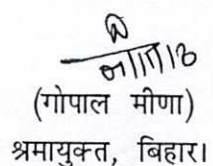 (गोपाल मीणा)
श्रमायुक्त, बिहार।